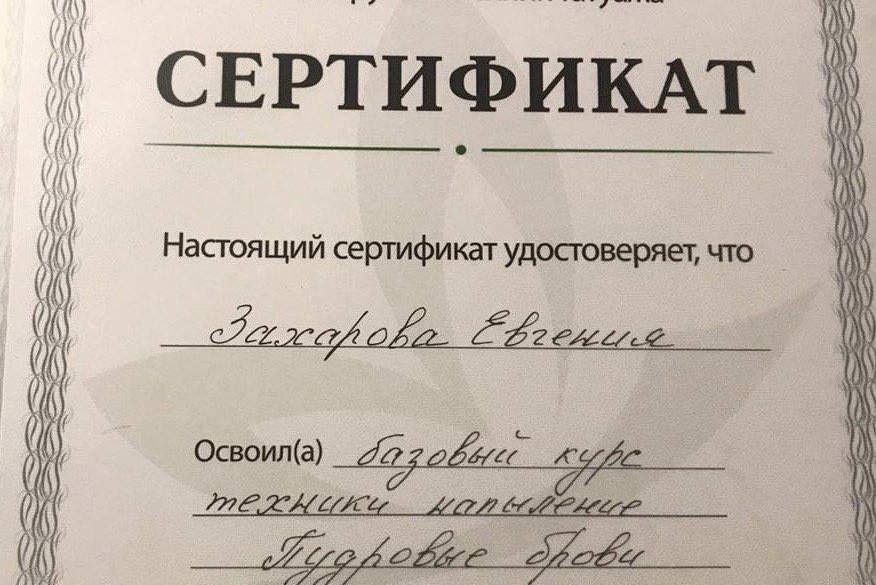 СЕРТИФИКАТ
Настоящий сертификат удостоверяет, что
Захарова Евгения
Освоил(а) базовый курс
техники напыление
Пудровые брови